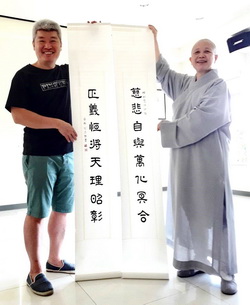 慈悲自與萬化冥合
正義恆將天理昭彰